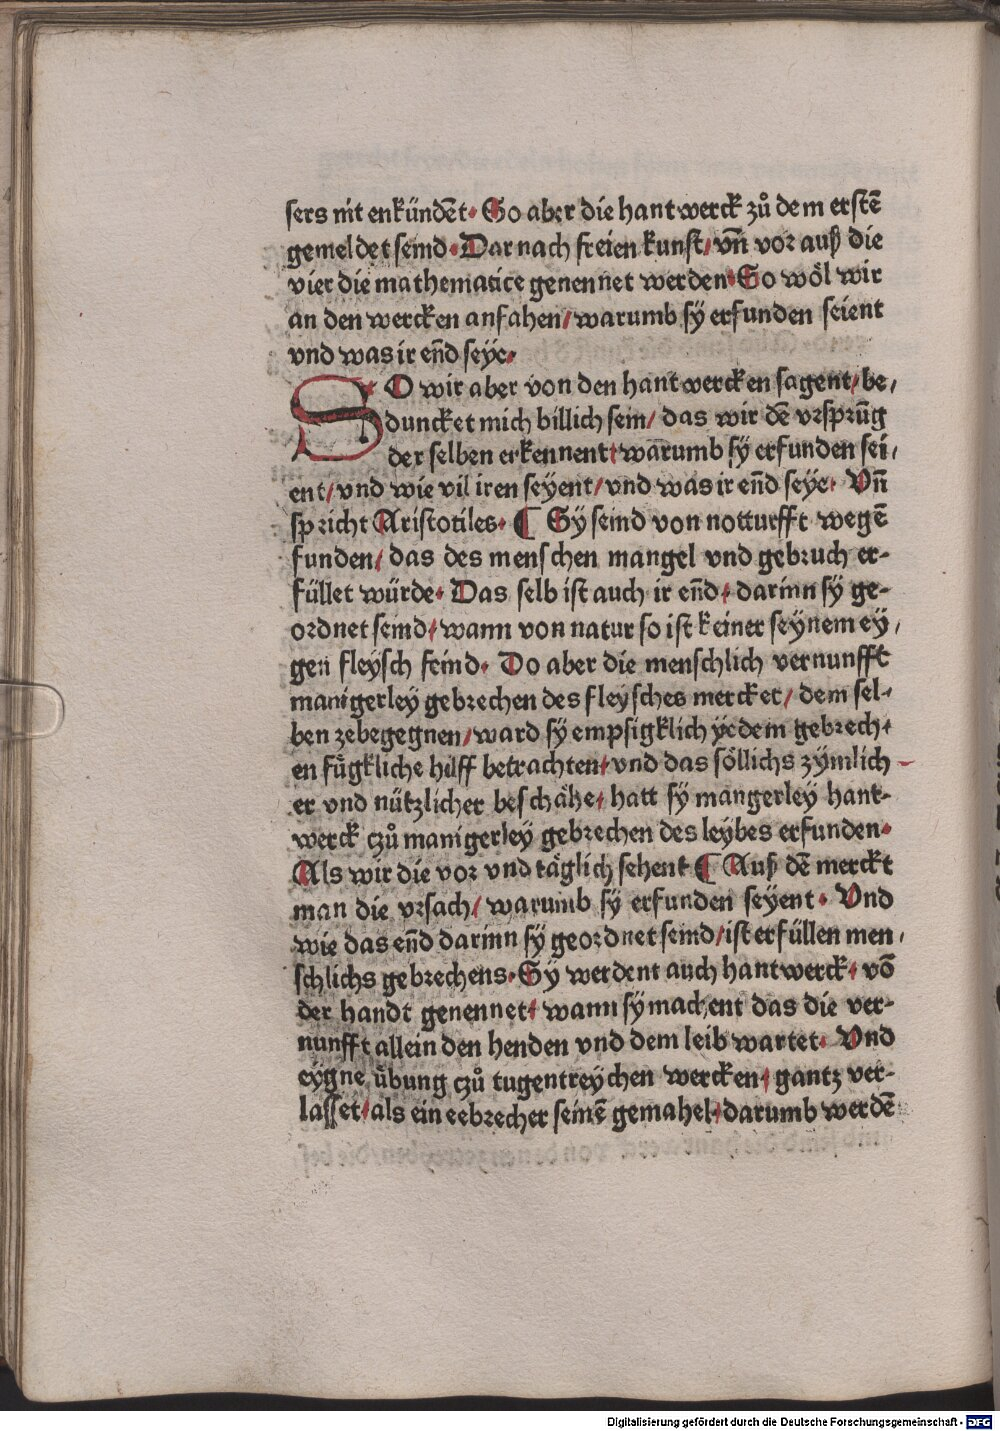 sers nit enkündēt· So aber die hant werck zů dem erstē
gemeldet seind· Dar nach freien kunst/ vn̄ vor auß die
vier die mathematice genennet werden· So wöl wir
an den wercken anfahen/ warumb sy erfunden seient
vnd was ir en̄d seÿe·
SO wir aber von den hant wercken sagent/ be/
duncket mich billich sein/ das wir dē vrsprūg
der selben erkennent/ warumb sÿ erfunden sei/
ent/ vnd wie vil iren seÿent/ vnd was ir en̄d seÿe· Vn̄
spricht Aristotiles· ¶ Sÿ seind von notturfft wegē
funden/ das des menschen mangel vnd gebruch er-
füllet würde· Das selb ist auch ir en̄d/ darinn sÿ ge-
ordnet seind/ wann von natur so ist keiner seÿnem eÿ/
gen fleÿsch feind· Do aber die menschlich vernunfft
manigerleÿ gebrechen des fleÿsches mercket/ dem sel/
ben zebegegnen/ ward sÿ empsigklich ÿedem gebrech/
en fůgkliche hilff betrachten/ vnd das söllichs zÿmlich
er vnd nützlicher beschähe/ hatt sÿ mangerleÿ hant-
werck czů manigerleÿ gebrechen des leÿbes erfunden·
Als wir die vor vnd täglich sehent ¶ Auß dē merckt
man die vrsach/ warumb sÿ erfunden seÿent· Vnd
wie das en̄d darinn sÿ geordnet seind/ ist erfüllen men/
schlichs gebrechens· Sÿ werdent auch hant werck/ vō
der handt genennet/ wann sÿ machent das die ver-
nunfft allein den henden vnd dem leib wartet· Vnd
eÿgne ůbung czů tugentreÿchen wercken/ gantz ver-
lasset/ als ein eebrecher seinē gemahel/ darumb werdē
Digitalisierung gefördert durch die Deutsche Forschungsgemeinschaft - DFG